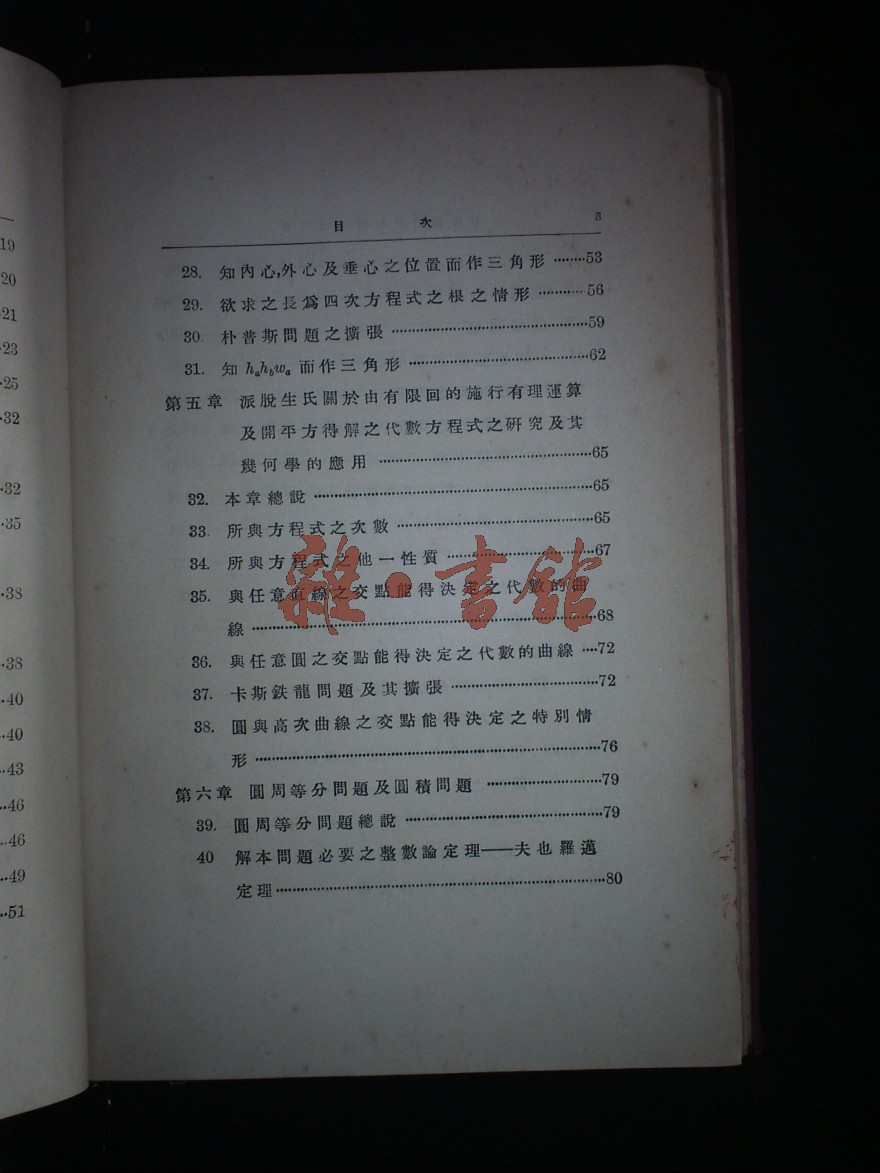 19
20
21
23
25
32
32
35
38
38
40
40
43
46
46
49
51
目 次 3
28. 知內心,外心及垂心之位置而作三角形 ········53
29. 欲求之長爲四次方程式之根之情形 ············56
30. 朴普斯問題之擴張 ············59
31. 知 hₐh_bwₐ 而作三角形 ············62
第五章 派脫生氏關於由有限回的施行有理運算
及開平方得解之代數方程式之硏究及其
幾何學的應用 ············65
32. 本章總說 ············65
33. 所與方程式之次數 ············65
34. 所與方程式之他一性質 ············67
35. 與任意直線之交點能得決定之代數的曲
線 ············68
36. 與任意圓之交點能得決定之代數的曲線 ····72
37. 卡斯鉄龍問題及其擴張 ············72
38. 圓與高次曲線之交點能得決定之特別情
形 ············76
第六章 圓周等分問題及圓積問題 ············79
39. 圓周等分問題總說 ············79
40 解本問題必要之整數論定理——夫也羅邁
定理············80
雜·書館